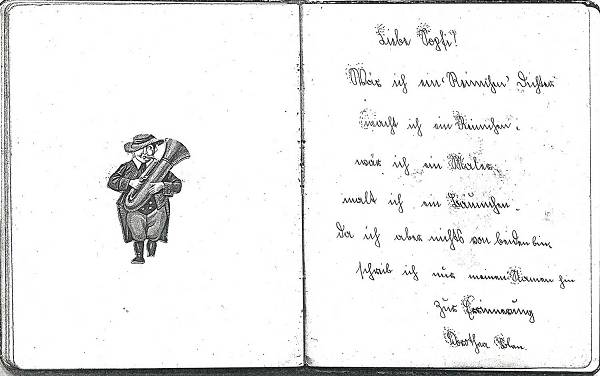 Liebe Sopfi!
Wär ich ein Reimchen Dichter
macht ich ein Reimchen.
wär ich ein Maler
malt ich ein Bäumchen.
da ich aber nichts von beiden bin,
schreib ich nur meinen Namen hin
zur Erinnerung
Dorothea